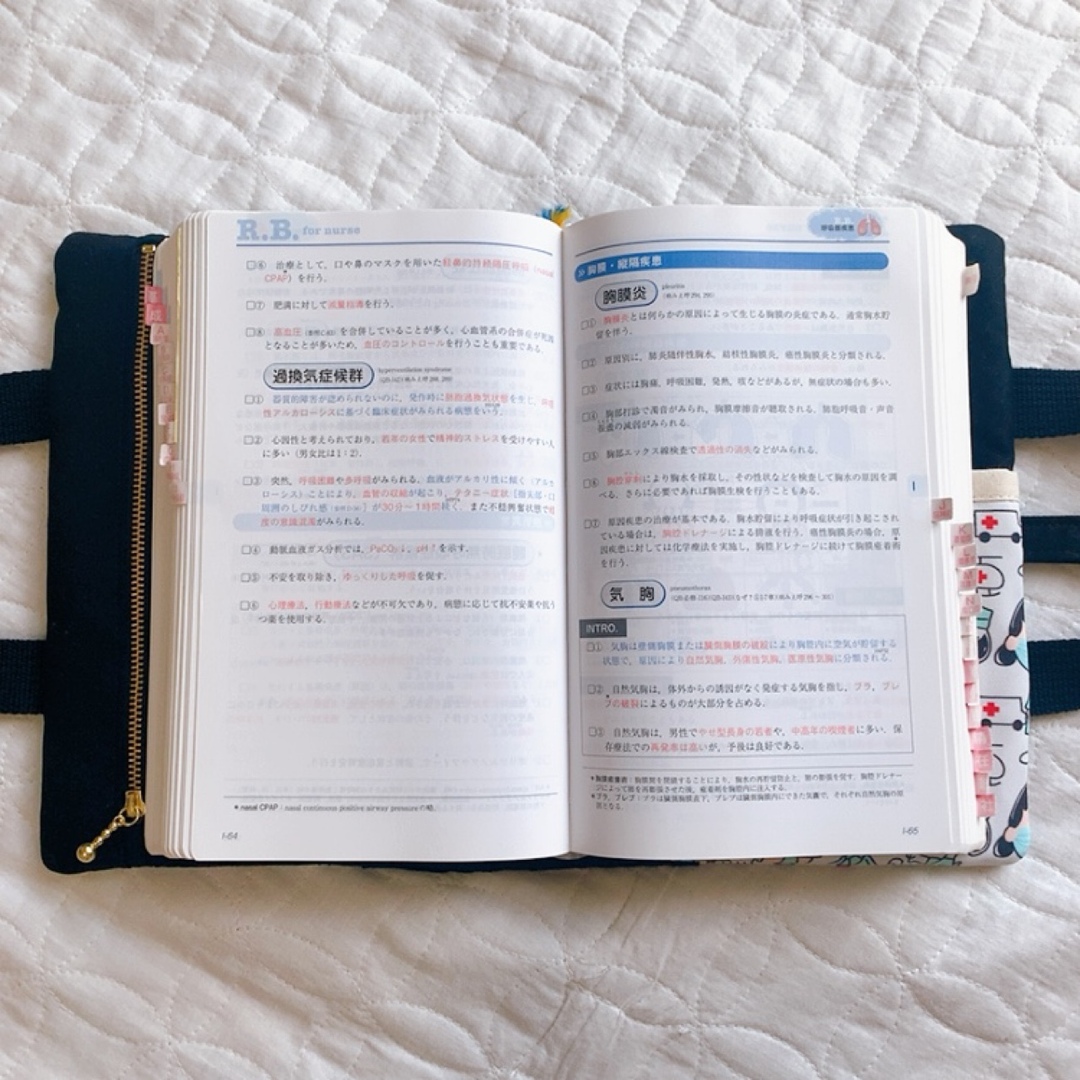 R.B. for nurse
□⑥ 治療として，口や鼻のマスクを用いた経鼻的持続陽圧呼吸（nasal
CPAP）を行う．
□⑦ 肥満に対して減量指導を行う．
□⑧ 高血圧 を合併していることが多く，心血管系の合併症が死因
となることが多いため，血圧のコントロールを行うことも重要である．
過換気症候群
hyperventilation syndrome
□① 器質的障害が認められないのに，発作時に肺胞過換気状態を生じ，呼吸
性アルカローシスに基づく臨床症状がみられる病態をいう．
□② 心因性と考えられており，若年の女性で精神的ストレスを受けやすい人
に多い（男女比は1：2）．
□③ 突然，呼吸困難や多呼吸がみられる．血液がアルカリ性に傾く（アルカ
ローシス）ことにより，血管の収縮が起こり，テタニー症状［指尖部・口
唇周のしびれ感 ］が30分〜1時間続く．また不穏興奮状態で軽
度の意識混濁がみられる．
□④ 動脈血液ガス分析では，PaCO₂↓，pH↑を示す．
□⑤ 不安を取り除き，ゆっくりした呼吸を促す．
□⑥ 心理療法，行動療法などが不可欠であり，病態に応じて抗不安薬や抗う
つ薬を使用する．
＊nasal CPAP：nasal continuous positive airway pressureの略．
I-64
R.B.
呼吸器疾患
≫ 胸膜・縦隔疾患
胸膜炎
pleuritis
□① 胸膜炎とは何らかの原因によって生じる胸膜の炎症である．通常胸水貯
留を伴う．
□② 原因別に，肺炎随伴性胸水，結核性胸膜炎，癌性胸膜炎と分類される．
□③ 症状には胸痛，呼吸困難，発熱，咳などがあるが，無症状の場合も多い．
□④ 胸部打診で濁音がみられ，胸膜摩擦音が聴取される．肺胞呼吸音・声音
振盪の減弱がみられる．
□⑤ 胸部エックス線検査で透過性の消失などがみられる．
□⑥ 胸腔穿刺により胸水を採取し，その性状などを検査して胸水の原因を調
べる．さらに必要であれば胸膜生検を行うこともある．
□⑦ 原因疾患の治療が基本である．胸水貯留により呼吸症状が引き起こされ
ている場合は，胸腔ドレナージによる排液を行う．癌性胸膜炎の場合，原
因疾患に対しては化学療法を実施し，胸腔ドレナージに続けて胸膜癒着術
を行う．
I
気 胸
pneumothorax
INTRO.
□① 気胸は壁側胸膜または臓側胸膜の破綻により胸腔内に空気が貯留する
状態で，原因により自然気胸，外傷性気胸，医原性気胸に分類される．
□② 自然気胸は，体外からの誘因がなく発症する気胸を指し，ブラ，ブレ
ブの破裂によるものが大部分を占める．
□③ 自然気胸は，男性でやせ型長身の若者や，中高年の喫煙者に多い．保
存療法での再発率は高いが，予後は良好である．
＊胸膜癒着術：胸膜間を閉鎖することにより，胸水の再貯留防止と，肺の膨張を促す．胸腔ドレナー
ジによって肺を再膨張させた後，癒着剤を胸腔内に注入する．
＊ブラ，ブレブ：ブラは臓側胸膜直下，ブレブは臓側胸膜内にできた気嚢で，それぞれ自然気胸の原
因となる．
I-65